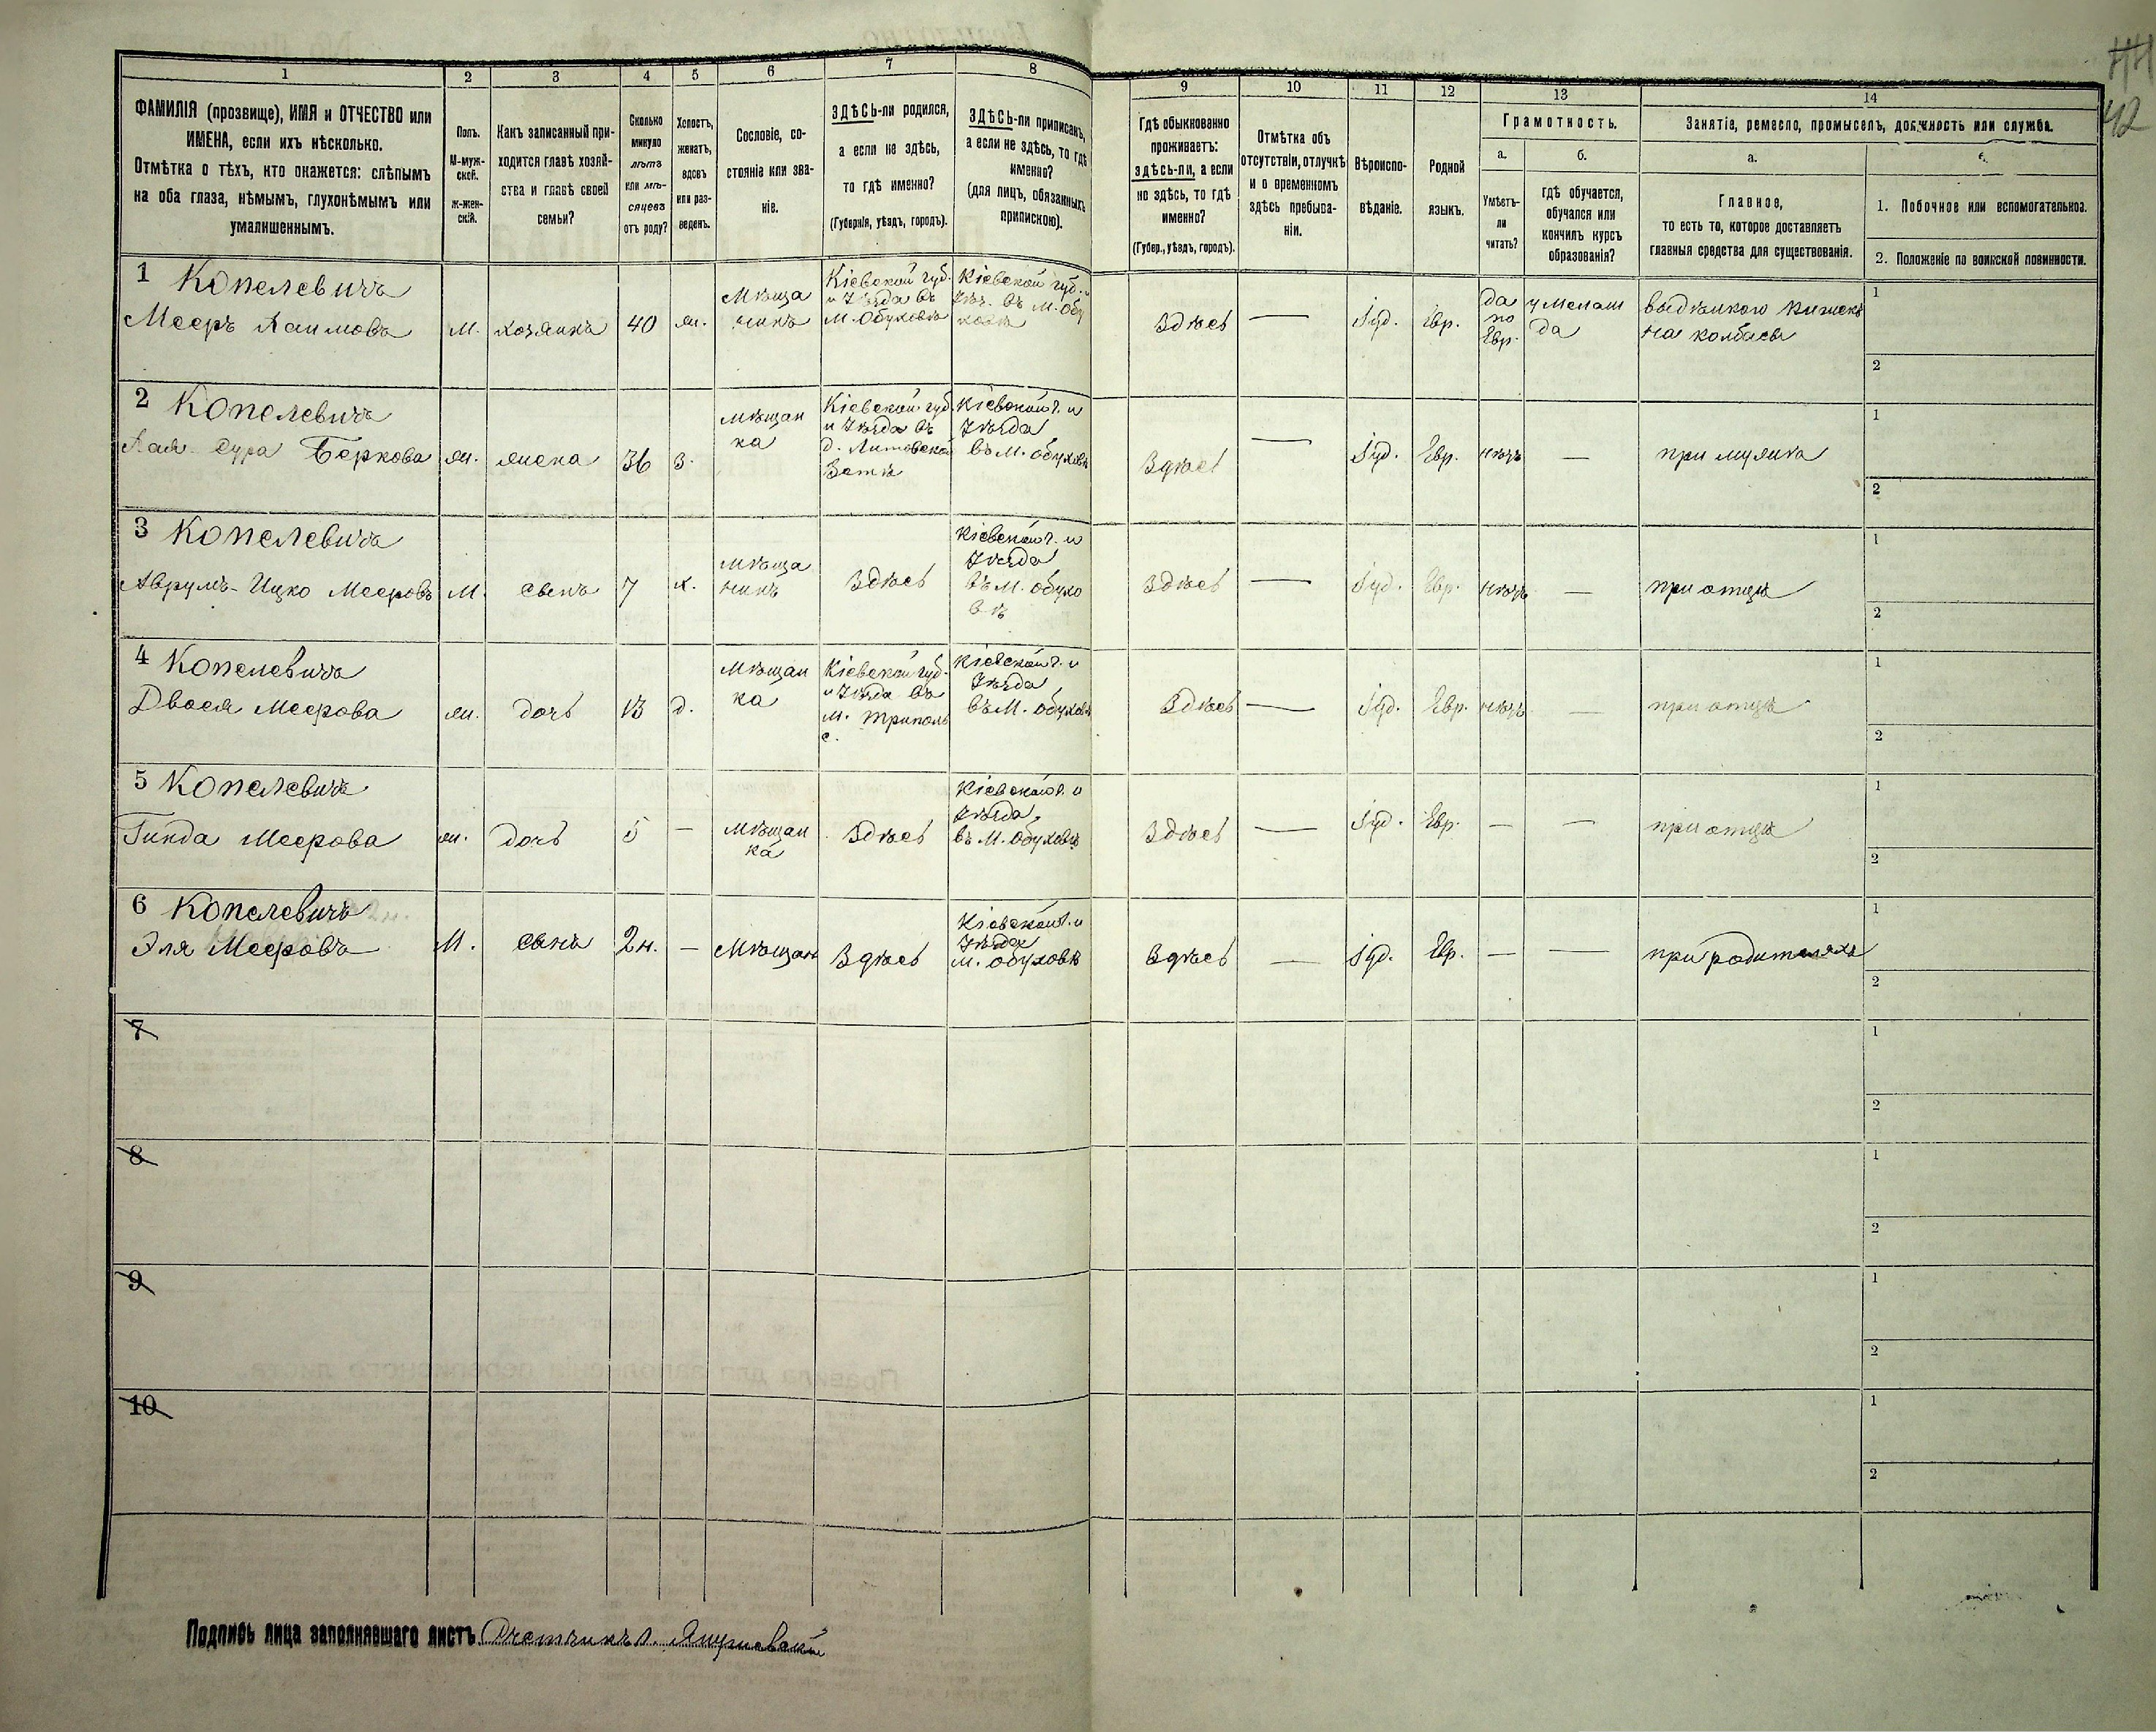 1 2 3 4 5 6 7 8 9 10 11 12 13 14
ФАМИЛІЯ (прозвище), ИМЯ и ОТЧЕСТВО или
ИМЕНА, если ихъ нѣсколько.
Отмѣтка о тѣхъ, кто окажется: слѣпымъ
на оба глаза, нѣмымъ, глухонѣмымъ или
умалишеннымъ.
Полъ.
М-муж-
ской.
Ж-жен-
скій.
Какъ записанный при-
ходится главѣ хозяй-
ства и главѣ своей
семьи?
Сколько
минуло
лѣтъ
или мѣ-
сяцевъ
отъ роду?
Холостъ,
женатъ,
вдовъ
или раз-
веденъ.
Сословіе, со-
стояніе или зва-
ніе.
ЗДѢСЬ-ли родился,
а если не здѣсь,
то гдѣ именно?
(Губернія, уѣздъ, городъ).
ЗДѢСЬ-ли приписанъ,
а если не здѣсь, то гдѣ
именно?
(для лицъ, обязанныхъ
припискою).
Гдѣ обыкновенно
проживаетъ:
здѣсь-ли, а если
не здѣсь, то гдѣ
именно?
(Губер., уѣздъ, городъ).
Отмѣтка объ
отсутствіи, отлучкѣ
и о временномъ
здѣсь пребыва-
ніи.
Вѣроиспо-
вѣданіе.
Родной
языкъ.
Грамотность.
а.
Умѣетъ-
ли
читать?
б.
гдѣ обучается,
обучался или
кончилъ курсъ
образованія?
Занятіе, ремесло, промыселъ, должность или служба.
а.
Главное,
то есть то, которое доставляетъ
главныя средства для существованія.
1. Побочное или вспомогательное.
2. Положеніе по воинской повинности.
1 Копелевичъ
Мееръ Хаимовъ
М. хозяинъ 40 ж.
Мѣща
нинъ
Кіевской губ.
и Уѣзда въ
М. Обуховкѣ
Кіевской губ. и
Уѣз. въ М. Обу
ховкѣ
Здѣсь — Іуд. Евр.
да
по
Евр.
у Мелам
да
выдѣлкою кишекъ
на колбасы
1
2
2 Копелевичъ
Хая-Сура Беркова
ж. жена 36 з.
Мѣщан
ка
Кіевской губ.
и Уѣзда въ
д.
Кіевской г. и
Уѣзда
въ М. Обуховкѣ
Здѣсь — Іуд. Евр. нѣтъ — при мужѣ
1
2
3 Копелевичъ
Аврумъ-Ицко Мееровъ
М. сынъ 7 х.
Мѣща
нинъ
Здѣсь
Кіевской г. и
Уѣзда
въ М. Обухо
вкѣ
Здѣсь — Іуд. Евр. нѣтъ — при отцѣ
1
2
4 Копелевичъ
Двося Меерова
ж. дочь 13 д.
Мѣщан
ка
Кіевской губ.
и Уѣзда въ
м. Триполь
е.
Кіевской г. и
Уѣзда
въ М. Обуховкѣ
Здѣсь — Іуд. Евр. нѣтъ — при отцѣ
1
2
5 Копелевичъ
Гинда Меерова
ж. дочь 5 —
Мѣщан
ка
Здѣсь
Кіевской г. и
Уѣзда,
въ М. Обуховкѣ
Здѣсь — Іуд. Евр. — — при отцѣ
1
2
6 Копелевичъ
Эля Мееровъ
М. сынъ 2 н. — Мѣщан Здѣсь
Кіевской г. и
Уѣзда
М. Обуховкѣ
Здѣсь — Іуд. Евр. — — при родителяхъ
1
2
7
1
2
8
1
2
9
1
2
10
1
2
Подпись лица заполнявшаго листъ Счетчикъ
42